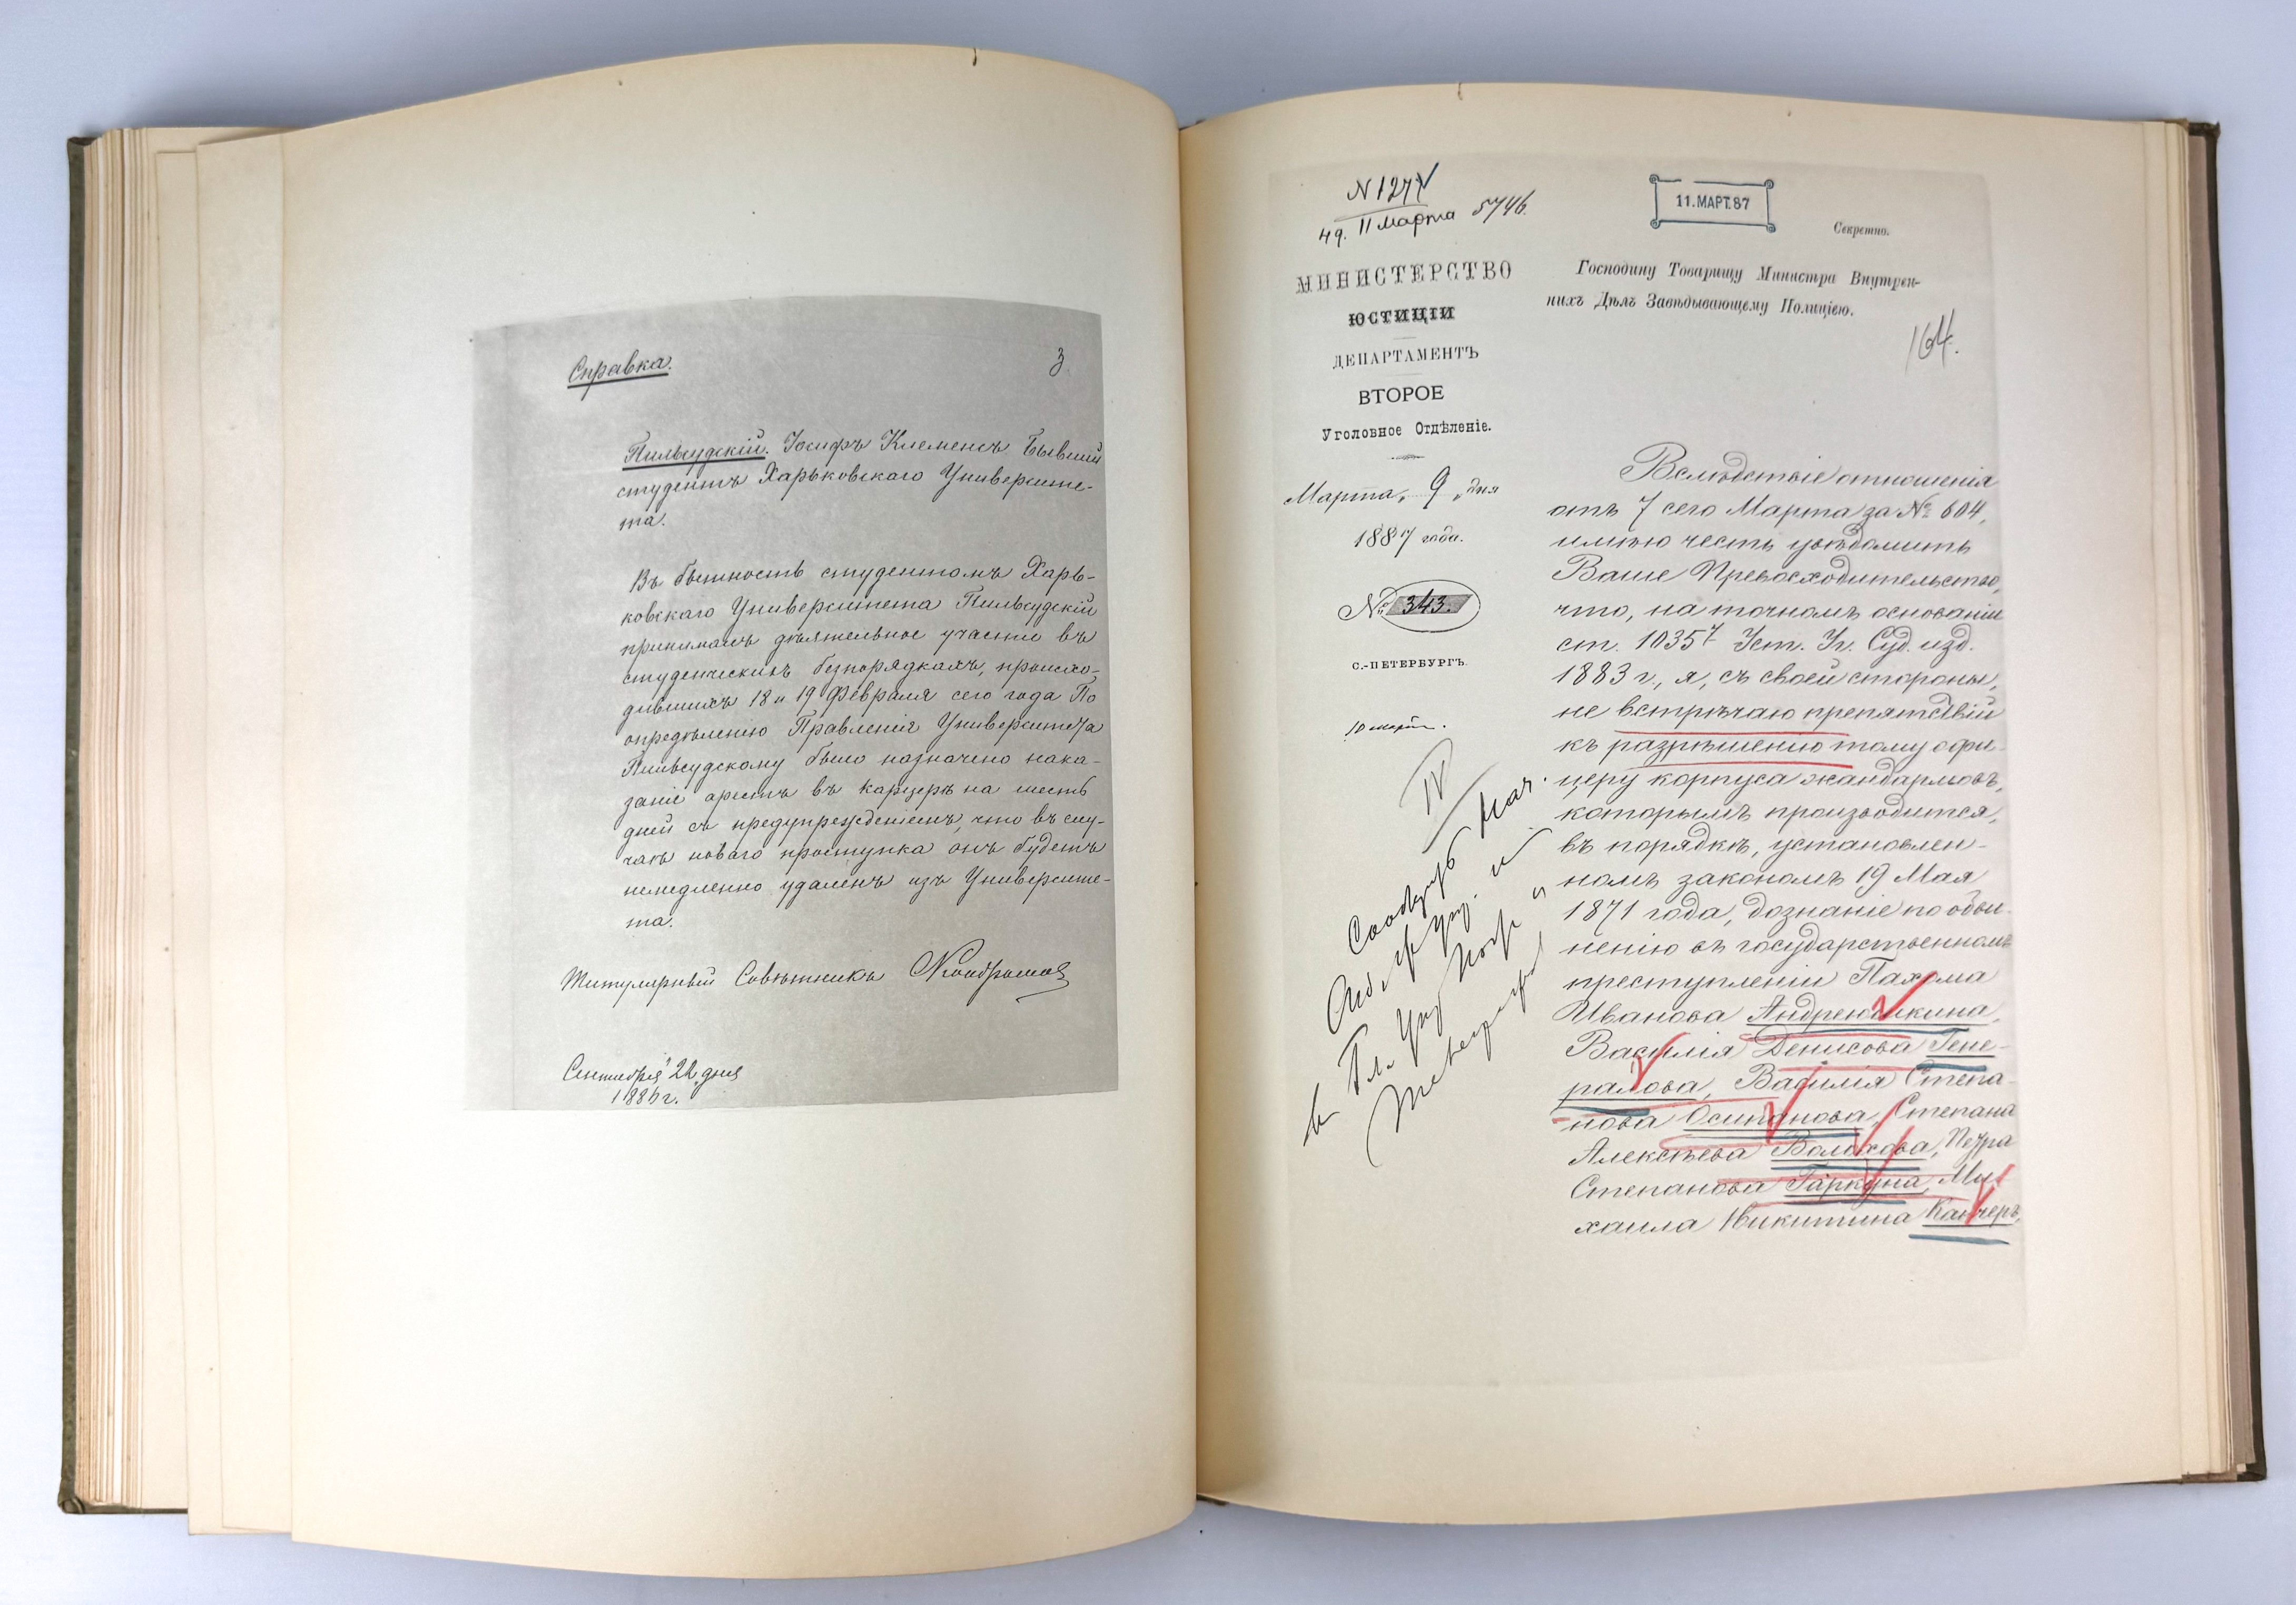 Справка.
3.
Пильсудскій. Іосифъ Клеменсъ бывшій
студентъ Харьковскаго Университе-
та.
Въ бытность студентомъ Харь-
ковскаго Университета Пильсудскій
принималъ дѣятельное участіе въ
студенческихъ безпорядкахъ, происхо-
дившихъ 18 и 19 Февраля сего года По
опредѣленію Правленія Университета
Пильсудскому было назначено нака-
заніе арестъ въ карцерѣ на шесть
дней съ предупрежденіемъ, что въ слу-
чаѣ новаго проступка онъ будетъ
немедленно удаленъ изъ Университе-
та.
Титулярный Совѣтникъ
Сентября 22 дня
188 г.
N 127
11 Марта 5746
11.МАРТ.87
Секретно.
МИНИСТЕРСТВО
ЮСТИЦІИ
ДЕПАРТАМЕНТЪ
ВТОРОЕ
Уголовное Отдѣленіе.
Марта „ 9 „ дня
1887 года.
№ 343.
С.-ПЕТЕРБУРГЪ.
10 март
Господину Товарищу Министра Внутрен-
нихъ Дѣлъ Завѣдывающему Полиціею.
164.
Вслѣдствіе отношенія
отъ 7 сего Марта за № 604,
имѣю честь увѣдомить
Ваше Превосходительство,
что, на точномъ основаніи
ст. 1035⁷ Уст. Уг. Суд. изд.
1883 г., я, съ своей стороны,
не встрѣчаю препятствій
къ разрѣшенію тому офи-
церу корпуса жандармовъ,
которымъ производится,
въ порядкѣ, установлен-
номъ закономъ 19 Мая
1871 года, дознаніе по обви-
ненію въ государственномъ
преступленіи Пахома
Иванова Андреюшкина,
Василія Денисова Гене-
ралова, Василія Степа-
нова Осипанова, Степана
Алексѣева Волохова, Петра
Степанова Гаркуна, Ми-
хаила Никитина Канчеръ,